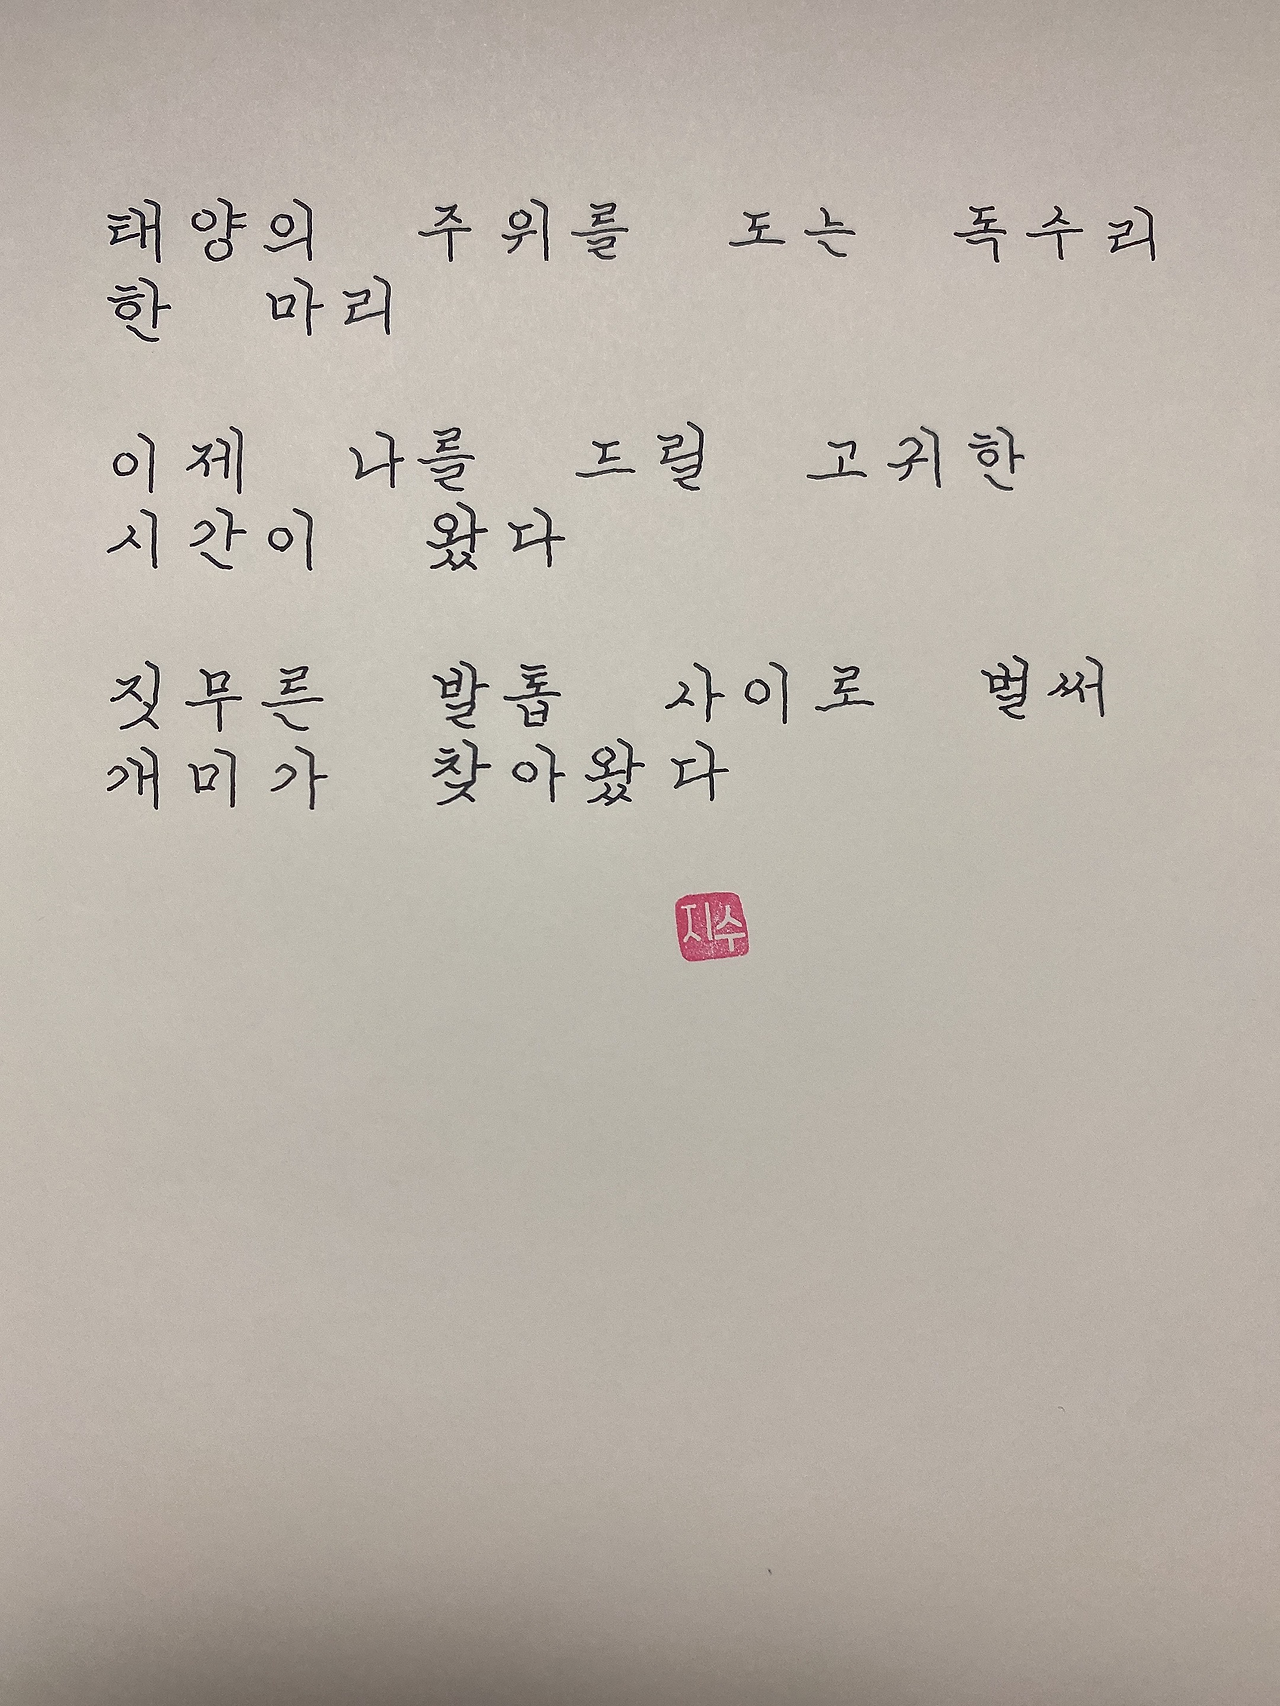 태양의 주위를 도는 독수리
한 마리
이제 나를 드릴 고귀한
시간이 왔다
짓무른 발톱 사이로 벌써
개미가 찾아왔다
지수